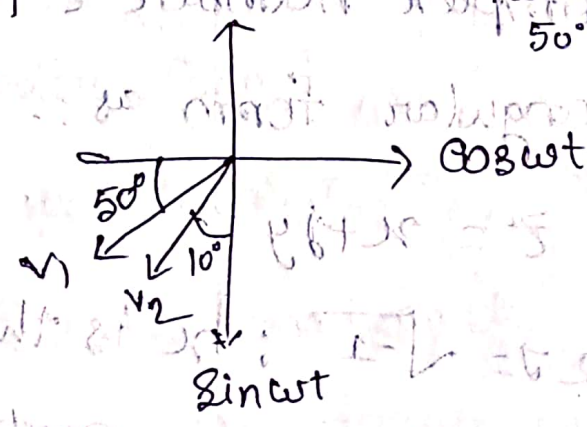 50°
cos wt
50°
10°
V1
V2
sin wt